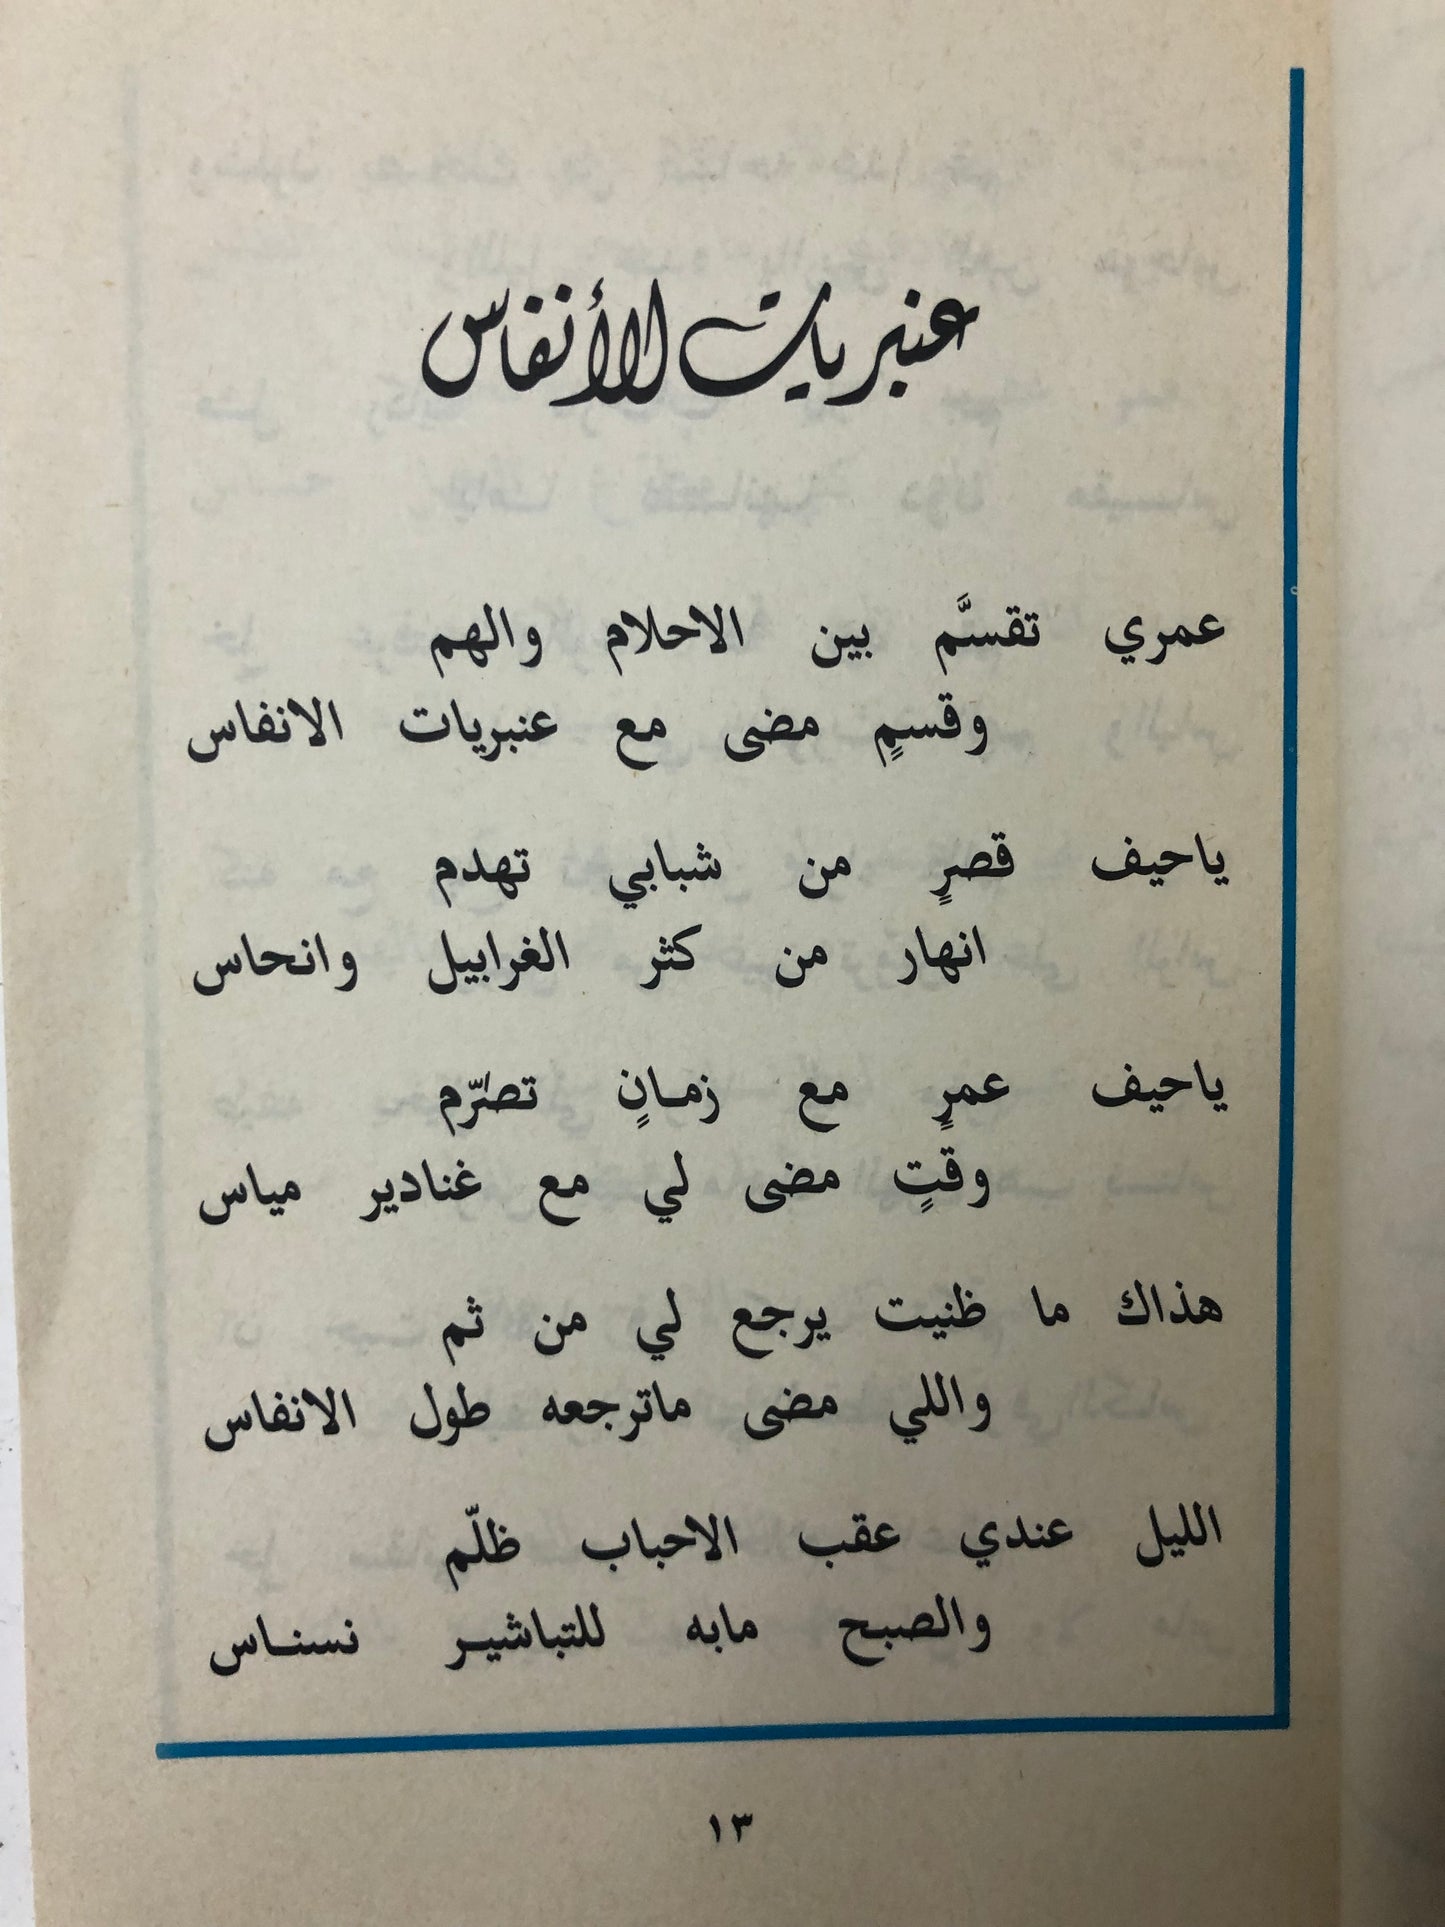 عنبريات الأنفاس
عمري تقسَّم بين الاحلام والهم
وقسمٍ مضى مع عنبريات الانفاس
ياحيف قصرٍ من شبابي تهدم
انهار من كثر الغرابيل وانحاس
ياحيف عمرٍ مع زمانٍ تصرّم
وقتٍ مضى لي مع غنادير مياس
هذاك ما ظنيت يرجع لي من ثم
واللي مضى ماترجعه طول الانفاس
الليل عندي عقب الاحباب ظلّم
والصبح مابه للتباشير نسناس
١٣